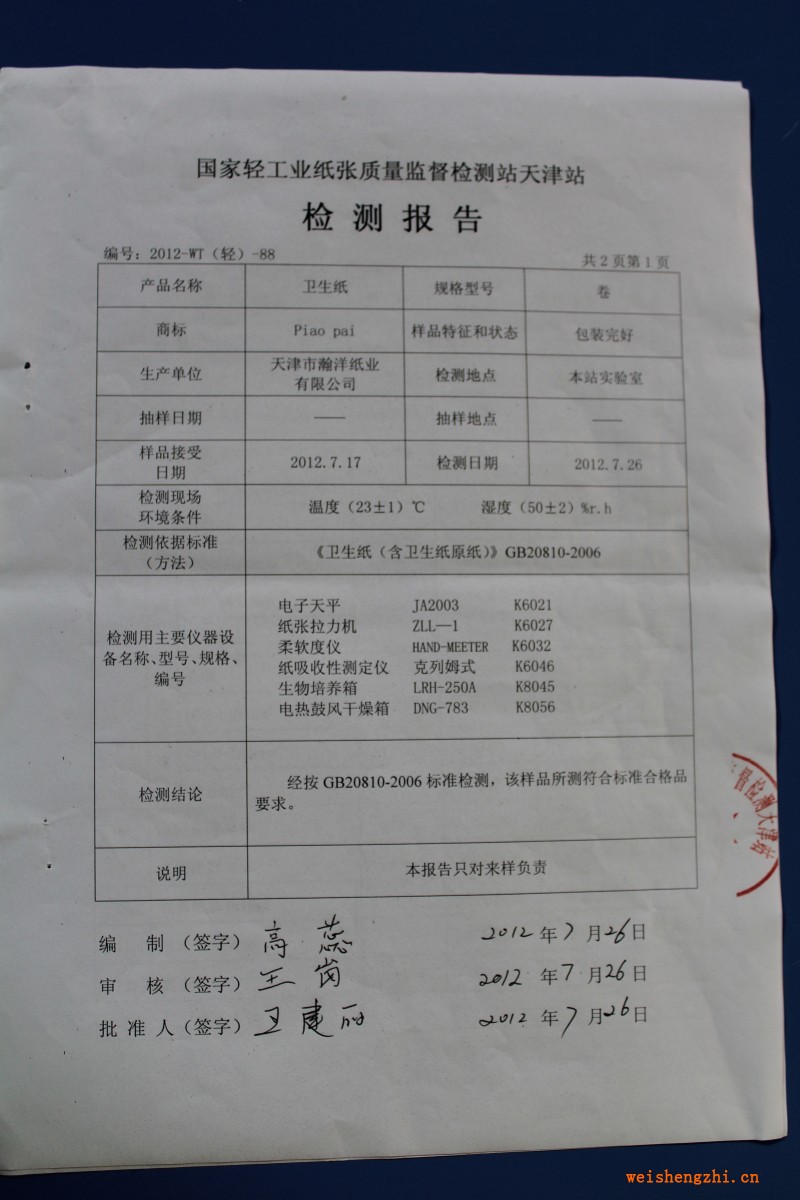 国家轻工业纸张质量监督检测站天津站
检测报告
编号：2012-WT（轻）-88
共2页第1页
产品名称 卫生纸 规格型号 卷
商标 Piao pai 样品特征和状态 包装完好
生产单位 天津市瀚洋纸业
有限公司 检测地点 本站实验室
抽样日期 —— 抽样地点 ——
样品接受
日期 2012.7.17 检测日期 2012.7.26
检测现场
环境条件 温度（23±1）℃ 湿度（50±2）%r.h
检测依据标准
（方法） 《卫生纸（含卫生纸原纸）》GB20810-2006
检测用主要仪器设
备名称、型号、规格、
编号
电子天平 JA2003 K6021
纸张拉力机 ZLL—1 K6027
柔软度仪 HAND-MEETER K6032
纸吸收性测定仪 克列姆式 K6046
生物培养箱 LRH-250A K8045
电热鼓风干燥箱 DNG-783 K8056
检测结论 经按 GB20810-2006 标准检测，该样品所测符合标准合格品
要求。
说明 本报告只对来样负责
编 制（签字） 高蕊 2012年7月26日
审 核（签字） 王岗 2012年7月26日
批准人（签字） 卫建丽 2012年7月26日
督检测天津站
weishengzhi.com.cn